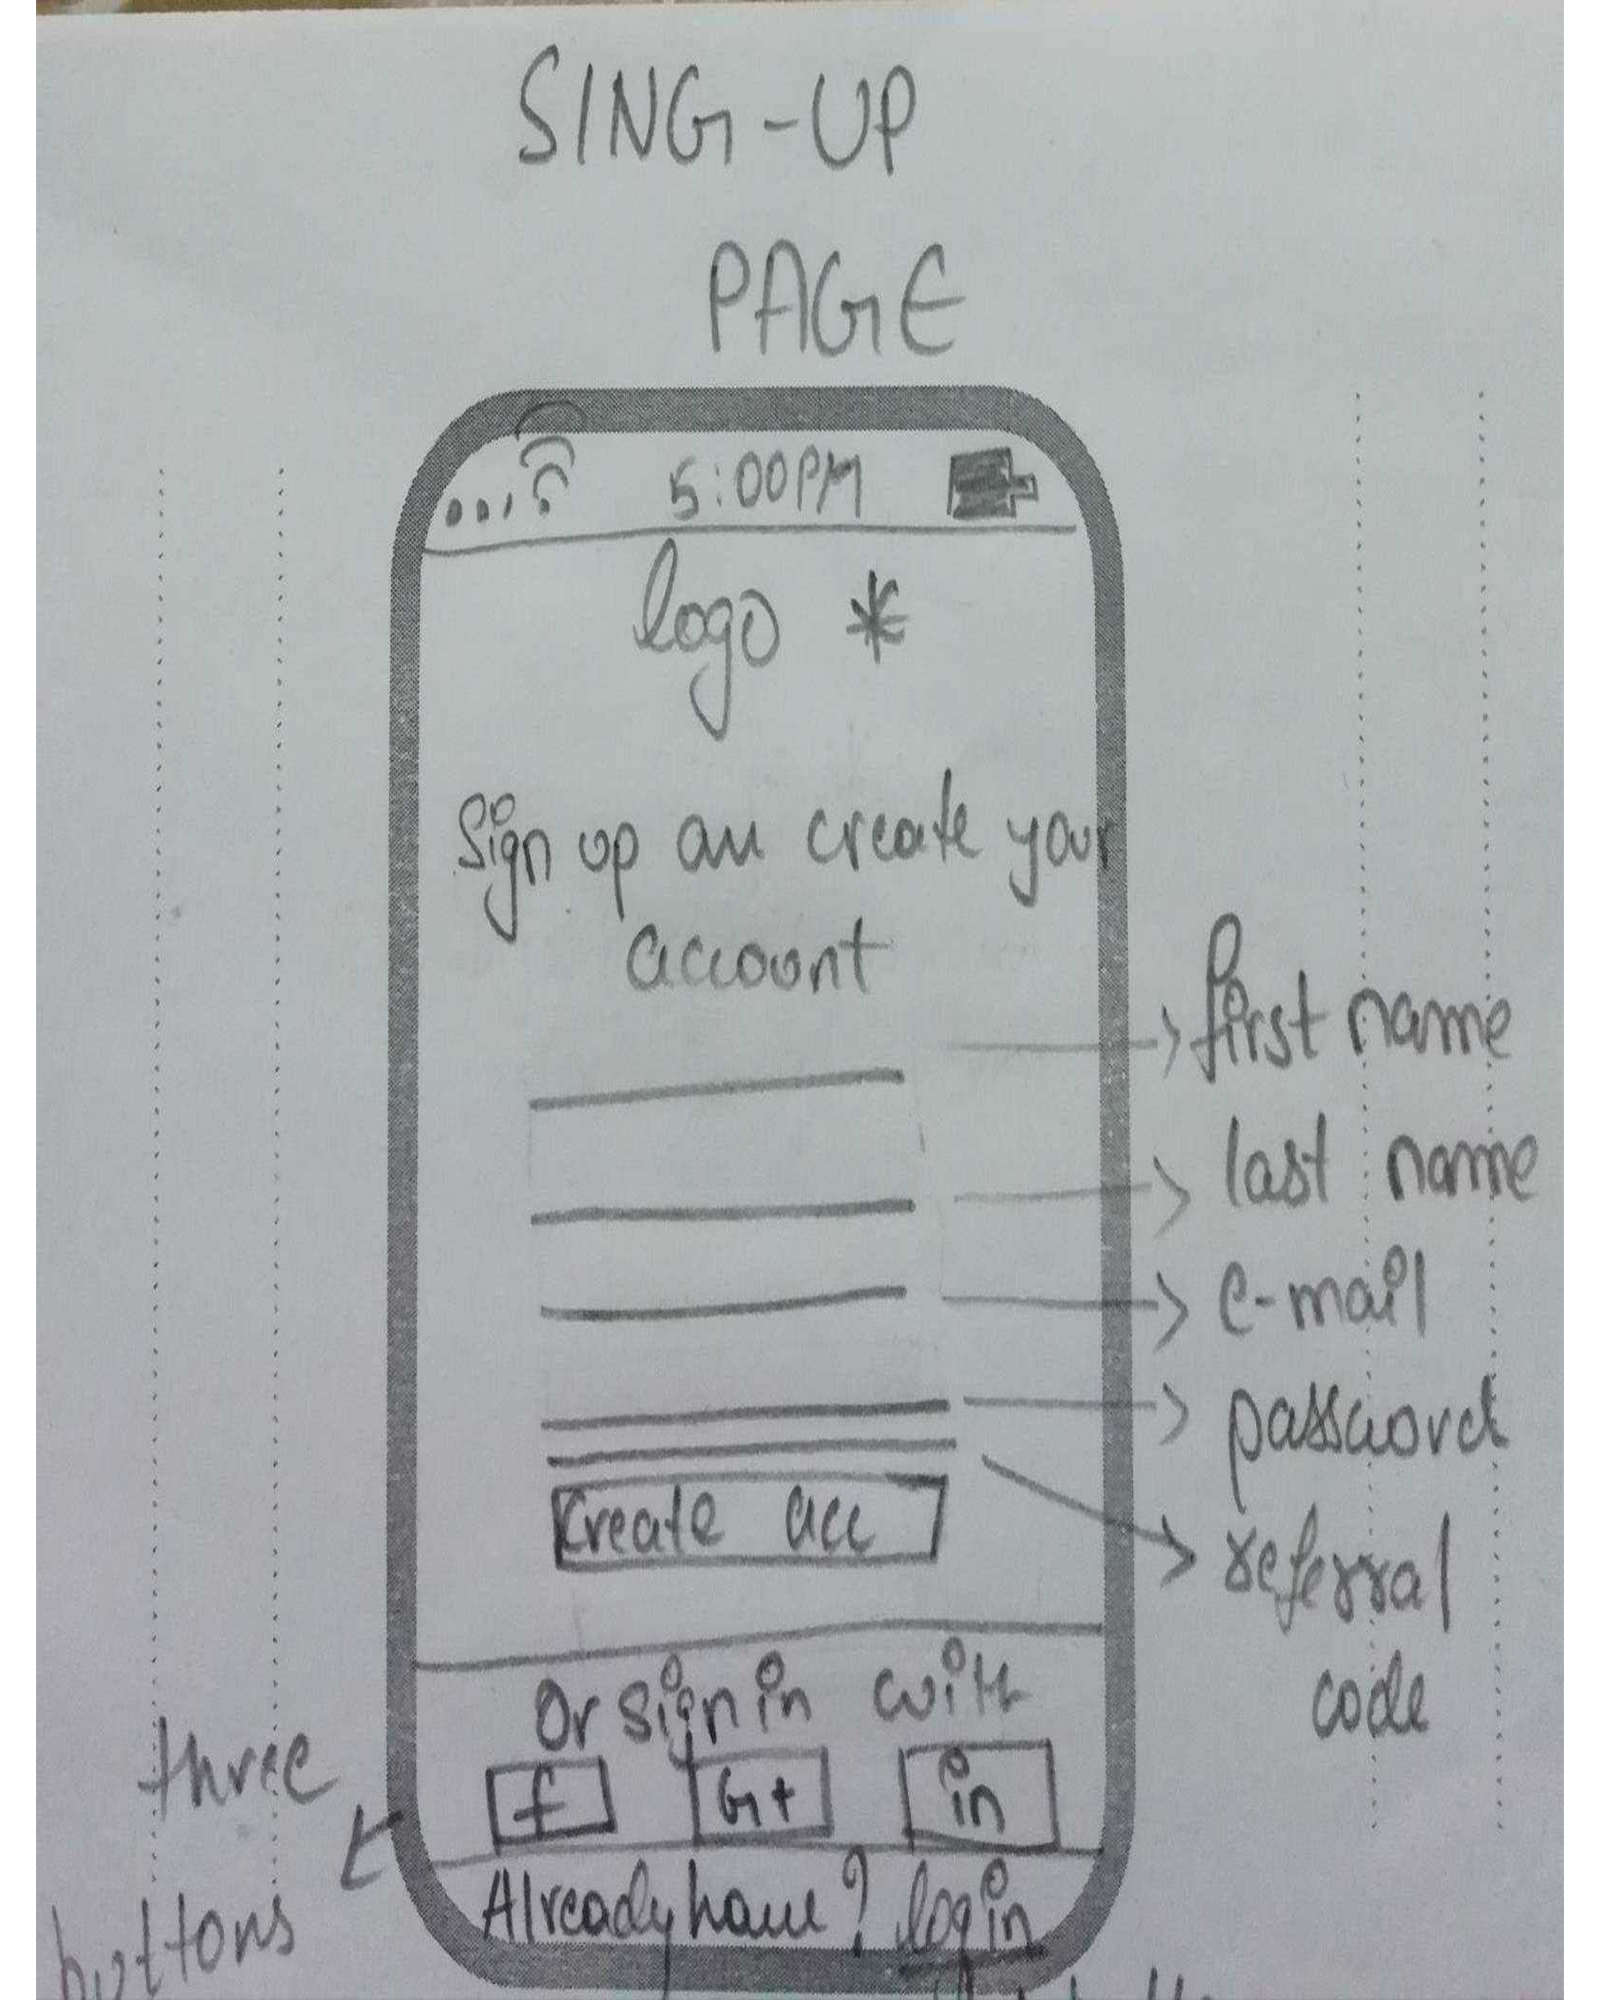 SING-UP
PAGE
5:00PM
logo *
Sign up an create your
account
first name
last name
e-mail
password
referral
code
Create acc
Or sign in with
f G+ in
three
buttons
Already have? log in